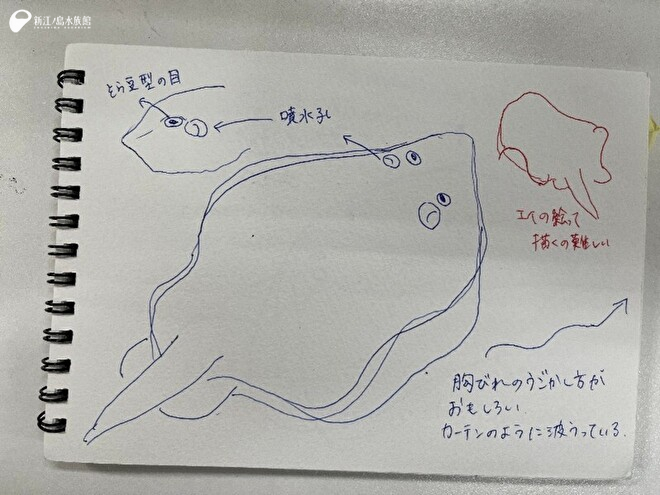 新江ノ島水族館
そら豆型の目
噴水孔
エイの絵って
描くの難しい
胸びれのうごかし方が
おもしろい
カーテンのように波うっている.